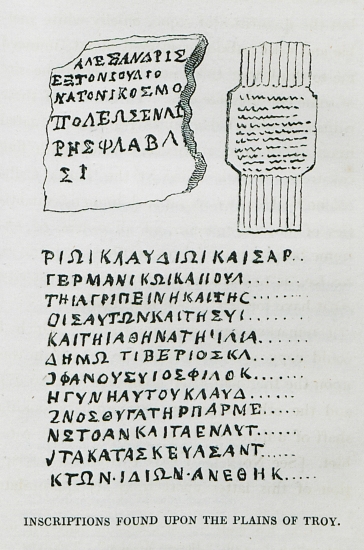 ΑΛΕΞΑΝΔΡΙΣ
ΕΞΤΟΝΙΟΥΛΙΟ
ΝΑΤΟΝΙΚΟΣΜΟ
ΠΟΛΕΩΣΕΝΛΙ
ΡΗΣΦΛΑΒΛ
ΣΙ
ΡΙΩΙΚΛΑΥΔΙΩΙΚΑΙΣΑΡ..
ΓΕΡΜΑΝΙΚΩΙΚΑΙΙΟΥΛ.....
ΤΗΙΑΓΡΙΠΕΙΝΗΚΑΙΤΗΣ......
ΟΙΣΑΥΤΩΝΚΑΙΤΗΣΥΙ......
ΚΑΙΤΗΙΑΘΗΝΑΤΗΙΙΛΙΑ......
ΔΗΜΩ ΤΙΒΕΡΙΟΣΚΛ......
ΟΦΑΝΟΥΣΥΙΟΣΦΙΛΟΚ.....
ΗΓΥΝΗΑΥΤΟΥΚΛΑΥΔ......
ΝΟΣΘΥΓΑΤΗΡΠΑΡΜΕ.....
ΝΣΤΟΑΝΚΑΙΤΑΕΝΑΥΤ.....
ΤΑΚΑΤΑΣΚΕΥΑΣΑΝΤ.....
ΚΤΩΝ·ΙΔΙΩΝ·ΑΝΕΘΗΚ.....
INSCRIPTIONS FOUND UPON THE PLAINS OF TROY.